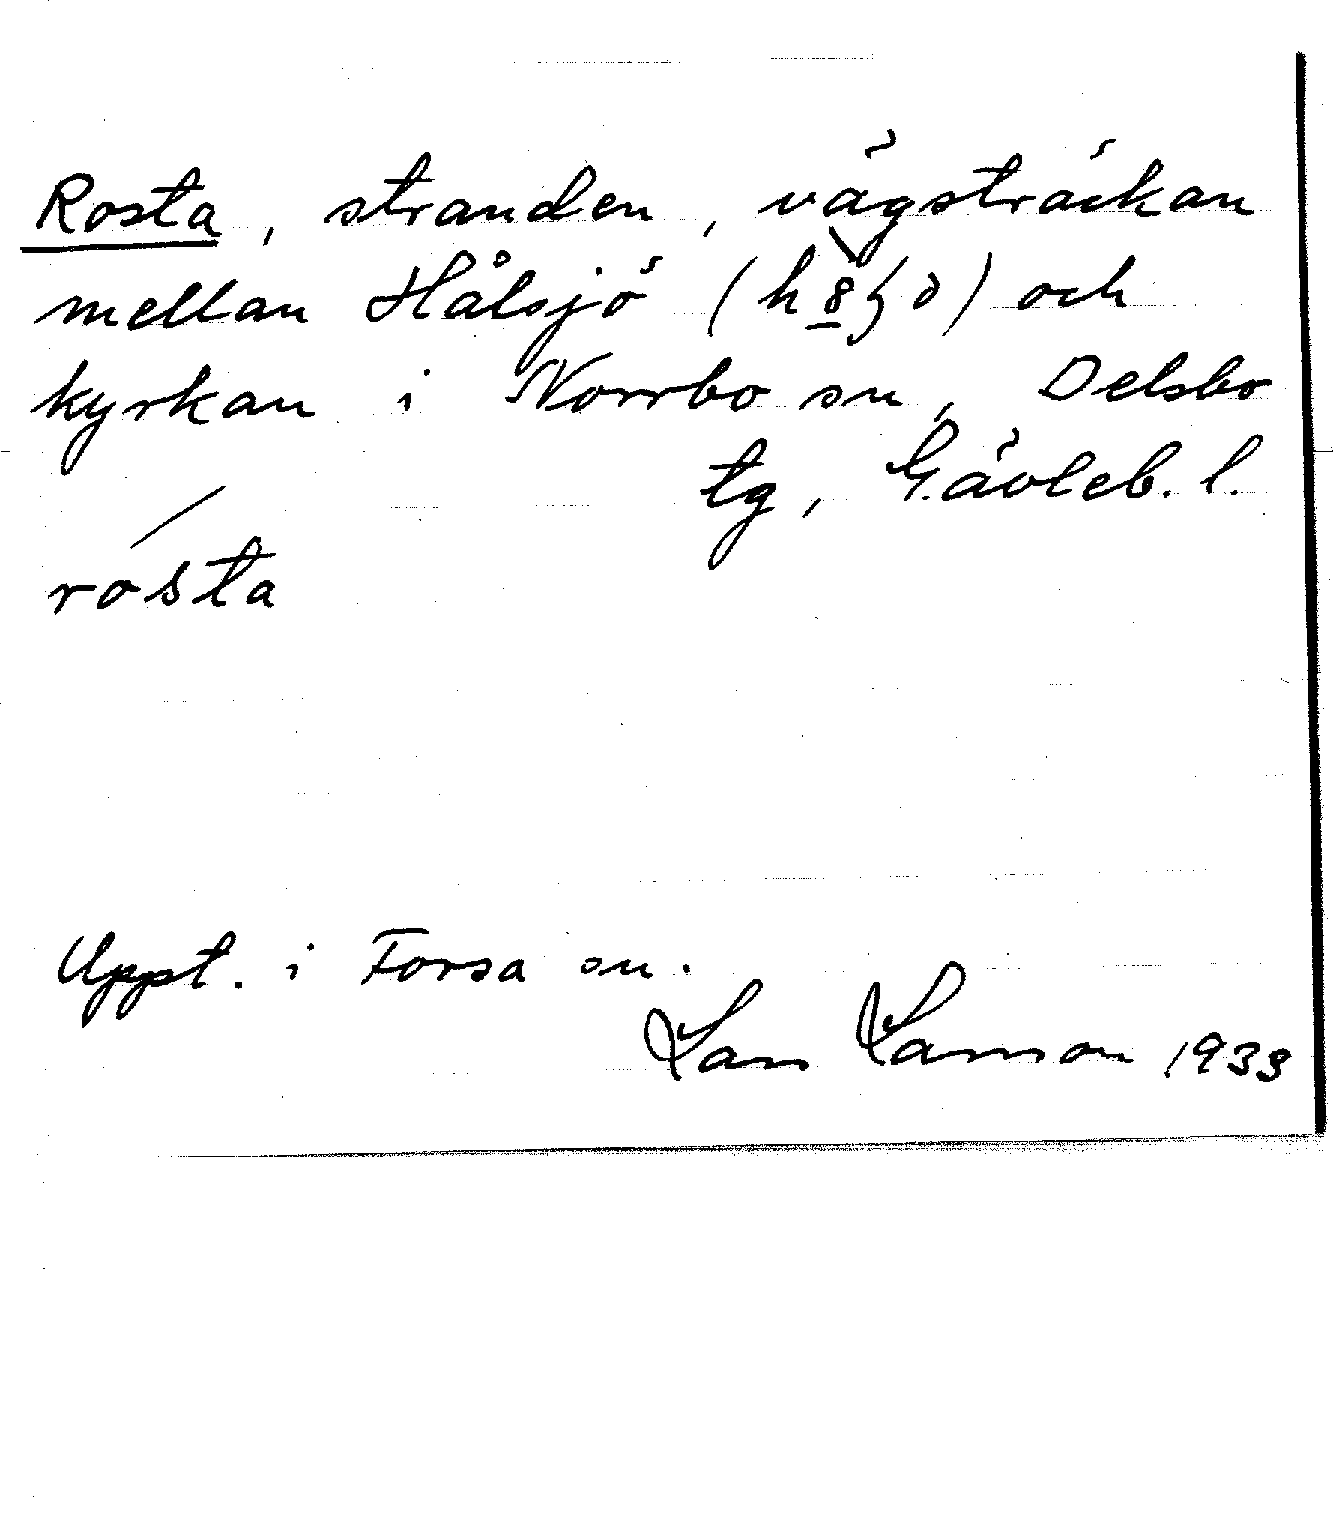 Rosta, stranden, vägsträckan
mellan Hålsjö ( ) och
kyrkan i Norrbo sn, Delsbo
tg, Gävleb. l.
rósta
Uppt. i Forsa sn.
Lars Larsson 1933